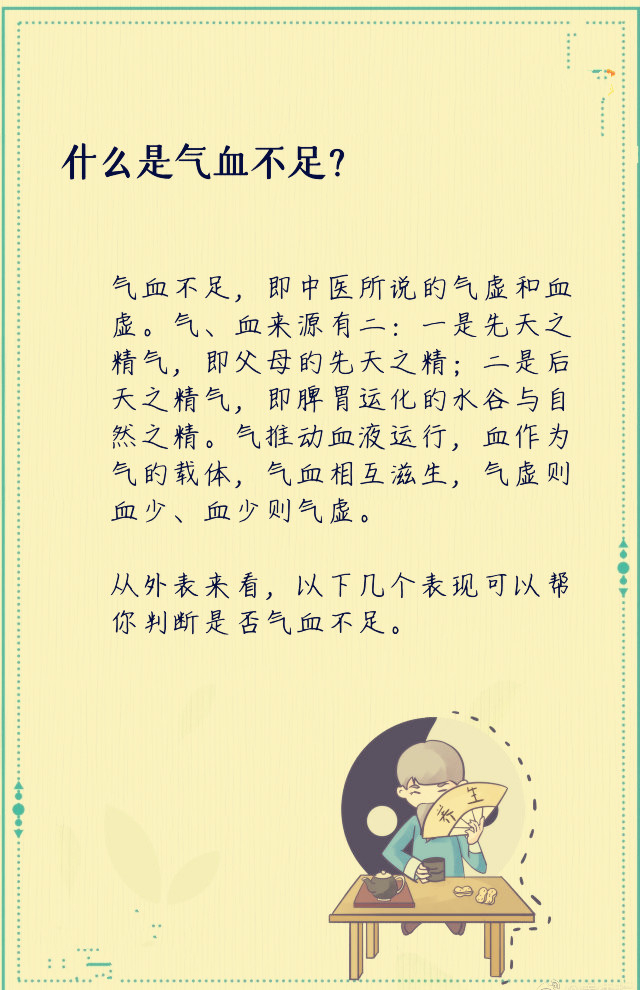 什么是气血不足？
气血不足，即中医所说的气虚和血
虚。气、血来源有二：一是先天之
精气，即父母的先天之精；二是后
天之精气，即脾胃运化的水谷与自
然之精。气推动血液运行，血作为
气的载体，气血相互滋生，气虚则
血少、血少则气虚。
从外表来看，以下几个表现可以帮
你判断是否气血不足。
养生